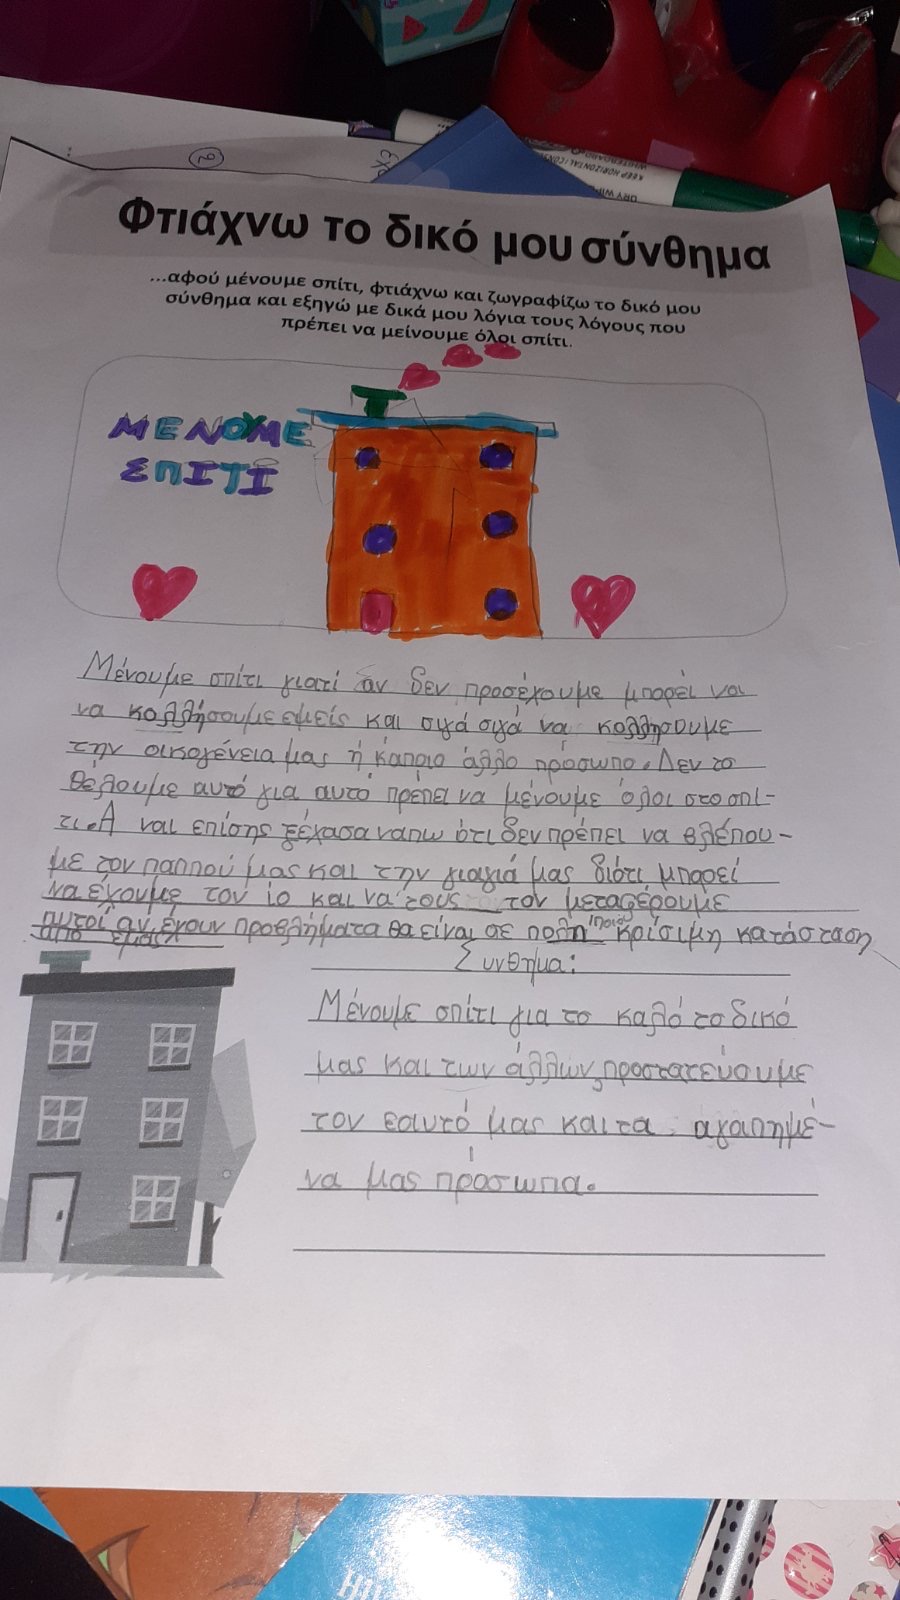 Φτιάχνω το δικό μου σύνθημα
...αφού μένουμε σπίτι, φτιάχνω και ζωγραφίζω το δικό μου
σύνθημα και εξηγώ με δικά μου λόγια τους λόγους που
πρέπει να μείνουμε όλοι σπίτι.
ΜΕΝΟΥΜΕ
ΣΠΙΤΙ
Μένουμε σπίτι γιατί αν δεν προσέχουμε μπορεί να
να κολλήσουμε εμείς και σιγά σιγά να κολλησουμε
την οικογένεια μας ή κάποιο άλλο πρόσωπο. Δεν το
θέλουμε αυτό για αυτό πρέπει να μένουμε όλοι στο σπί-
τι. Α ναι επίσης ξέχασα να πω ότι δεν πρέπει να βλέπου-
με τον παππού μας και την γιαγιά μας διότι μπορεί
να έχουμε τον ίο και να τους τον μεταφέρουμε
αυτοί αν έχουν προβλήματα θα είναι σε πολη ποιο κρίσιμη κατάσταση
από εμας
Συνθημα:
Μένουμε σπίτι για το καλό το δικό
μας και των άλλων, προστατεύουμε
τον εαυτό μας και τα αγαπημέ-
να μας πρόσωπα.
KEEP HORIZONTAL
DRY WIPE